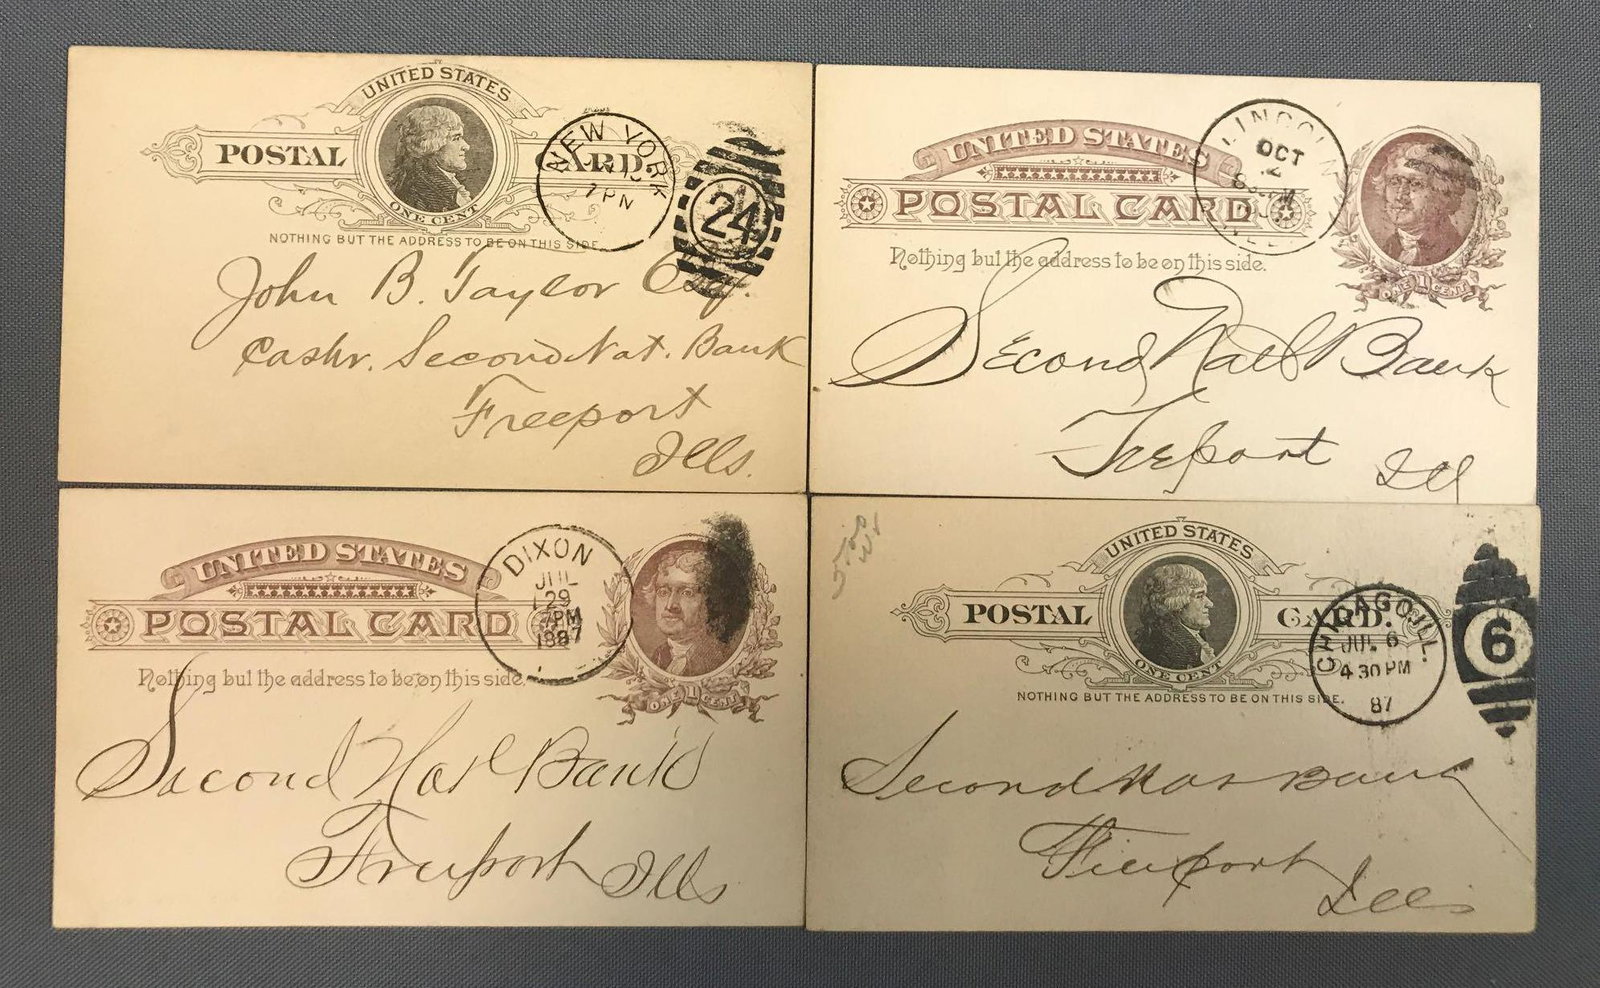 UNITED STATES
POSTAL CARD.
ONE CENT
NOTHING BUT THE ADDRESS TO BE ON THIS SIDE.
NEW YORK
7 PM
24
John B. Taylor Esq.
Cashr. Second Nat. Bank
Freeport
Ills.
UNITED STATES
POSTAL CARD
ONE 1 CENT
Nothing but the address to be on this side.
LINCOLN
OCT
2
Second Natl Bank
Freport
Ill
UNITED STATES
POSTAL CARD
ONE 1 CENT
Nothing but the address to be on this side.
DIXON
JUL
29
7PM
1887
Second Nat Bank
Freeport Ills
UNITED STATES
POSTAL CARD.
ONE CENT
NOTHING BUT THE ADDRESS TO BE ON THIS SIDE.
CHICAGO, ILL.
JUL 6
4 30 PM
87
6
Second Nat Bank
Freeport
Ills